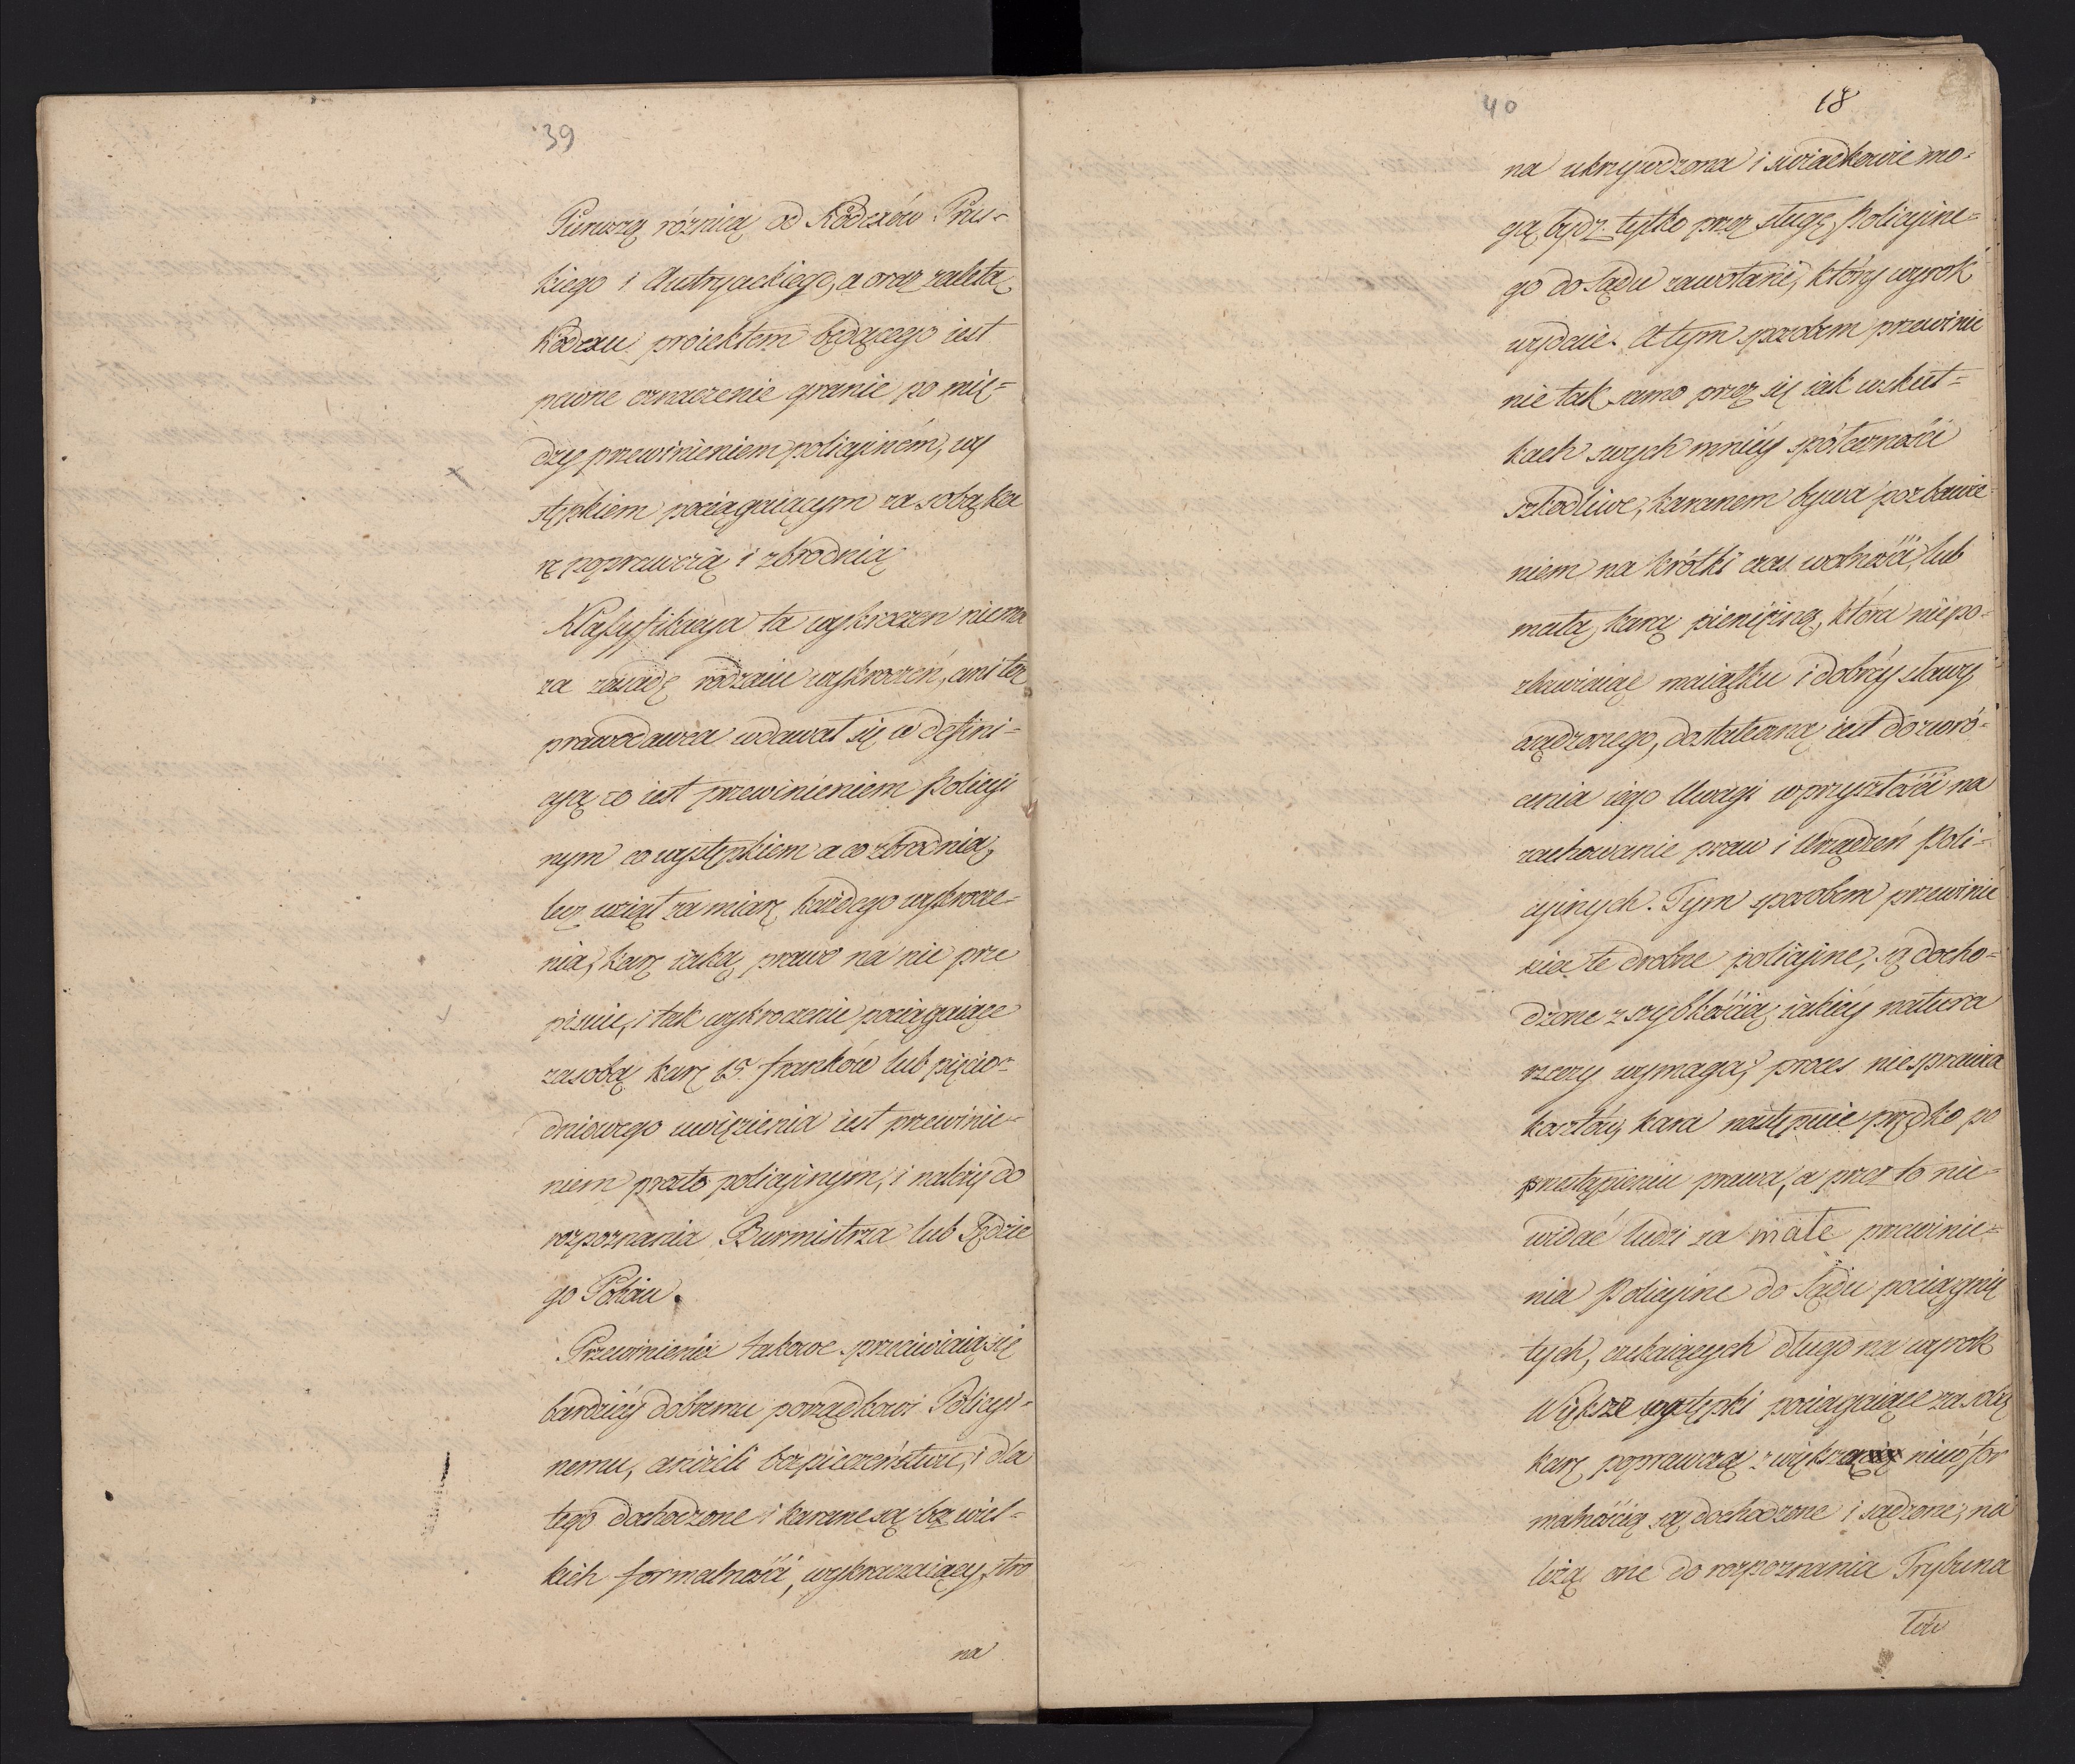 39
Pierwszą różnicą od Kodexów Prus-
kiego i Austryackiego, a oraz zaletą
Kodexu proiektem będącego iest
pewne oznaczenie granic po mię=
dzy przewinieniem policyiném, wy
stępkiem pociągaiącym za sobą ka
rę poprawczą i zbrodnią
Klassyfikacya ta wykroczen niema
za zasadę rodzaiu wykroczeń, ani też
prawodawca wdawał się w defini-
cyą co iest przewinieniem Policyi
nym co występkiem a co zbrodnią,
lecz wziął za miarę każdego wykrocze-
nia, karę iaką prawo na nie prze
pisuie, i tak wykroczenie pociągaiące
zasobą karę 15. franków lub pięcio-
dniowego uwięzienia iest przewinie-
niem prosto policyinym, i należy do
rozpoznania Burmistrza lub Sędzie
go Pokoiu.
Przewinienia takowe sprzeciwiaią się
bardziéy dobremu porządkowi Policyi-
nemu, aniżeli bezpieczeństwu, i dla
tego dochodzone i karane są bez wiel-
kich formalności, wykraczaiący, stro
na
40
18
na ukrzywdzona i swiadkowie mo-
gą bydź tylko przez sługę Policyine-
go do Sądu zawołani, który wyrok
wydaie. A tym sposobem przewinie
nie tak samo przez się iak w skut=
kach swych mniéy społeczności
szkodliwe, karanem bywa pozbawie
niem na krótki czas wolności, lub
małą karą pieniężną, która nie po-
zbawiaiąc maiątku i dobréy sławy
osądzonego, dostateczną iest do zwró-
cenia iego Uwagi w przyszłości na
zachowanie praw i Urządzeń Poli-
cyinych. Tym sposobem przewinie
nia te drobne policyine, są docho-
dzone z szybkością iakiéy natura
rzeczy wymaga, proces nie sprawia
kosztów, kara następuie prędko po
przestąpieniu prawa, a przez to nie-
widać ludzi za małe przewinie-
nia Policyine do Sądu pociągnię
tych, czekaiących długo na wyrok
Większe występki pociągaiące za sobą
karę poprawczą z większą nieco for
malnością są dochodzone i sądzone, na
leżą one do rozpoznania Trybuna
łów